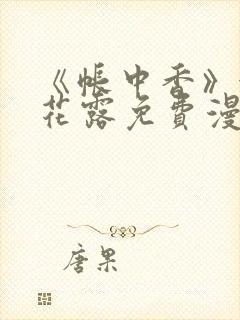 《帐中香》
花露免费漫
唐果